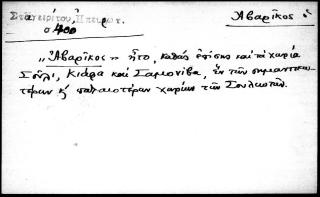 Σταγειρίτου, Ἠπειρωτ.
σ 400
Ἀβαρῖκος ὁ
„Ἀβαρῖκος" ἦτο, καθὼς ἐπίσης καὶ τὰ χωρία
Σοῦλι, Κιάφα καὶ Σαμονίβα, ἐκ τῶν σημαντικω-
τέρων κ' παλαιοτέρων χωρίων τῶν Σουλιωτῶν.